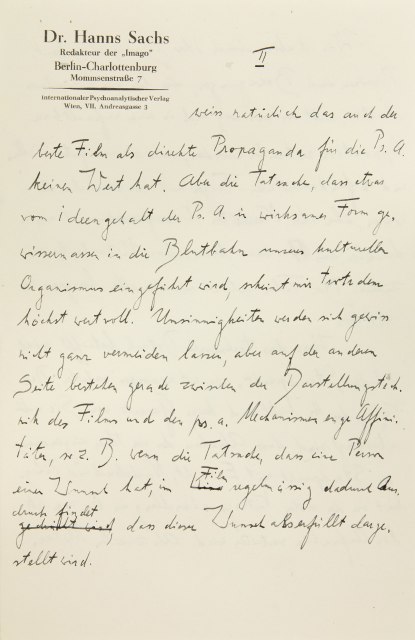 Dr. Hanns Sachs
Redakteur der „Imago"
Berlin-Charlottenburg
Mommsenstraße 7
Internationaler Psychoanalytischer Verlag
Wien, VII. Andreasgasse 3
II
weiss natürlich das auch der
beste Film als direkte Propaganda für die Ps. A.
keinen Wert hat. Aber die Tatsache, dass etwas
vom Ideengehalt der Ps. A. in wirksamer Form ge-
wissermassen in die Blutbahn unseres kulturellen
Organismus eingeführt wird, scheint mir trotzdem
höchst wertvoll. Unsinnigkeiten werden sich gewiss
nicht ganz vermeiden lassen, aber auf der anderen
Seite bestehen gerade zwischen der Darstellungstech-
nik des Films und den ps. a. Mechanismen enge Affini-
täten, so z. B. wenn die Tatsache, dass eine Person
einen Wunsch hat, im Film regelmässig dadurch Aus-
druck findet, dass dieser Wunsch als erfüllt darge-
stellt wird.